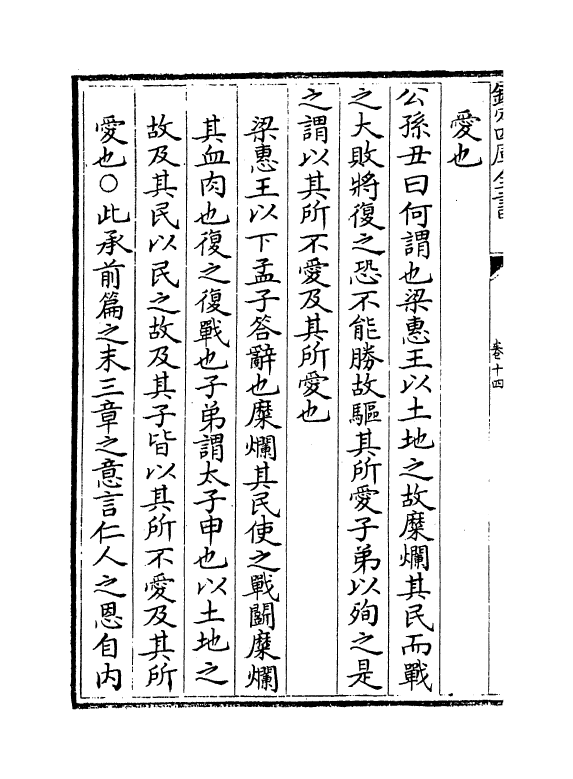 欽定四庫全書
卷十四
愛也
公孫丑曰何謂也梁惠王以土地之故糜爛其民而戰
之大敗將復之恐不能勝故驅其所愛子弟以殉之是
之謂以其所不愛及其所愛也
梁惠王以下孟子答辭也糜爛其民使之戰鬭糜爛
其血肉也復之復戰也子弟謂太子申也以土地之
故及其民以民之故及其子皆以其所不愛及其所
愛也○此承前篇之末三章之意言仁人之恩自内